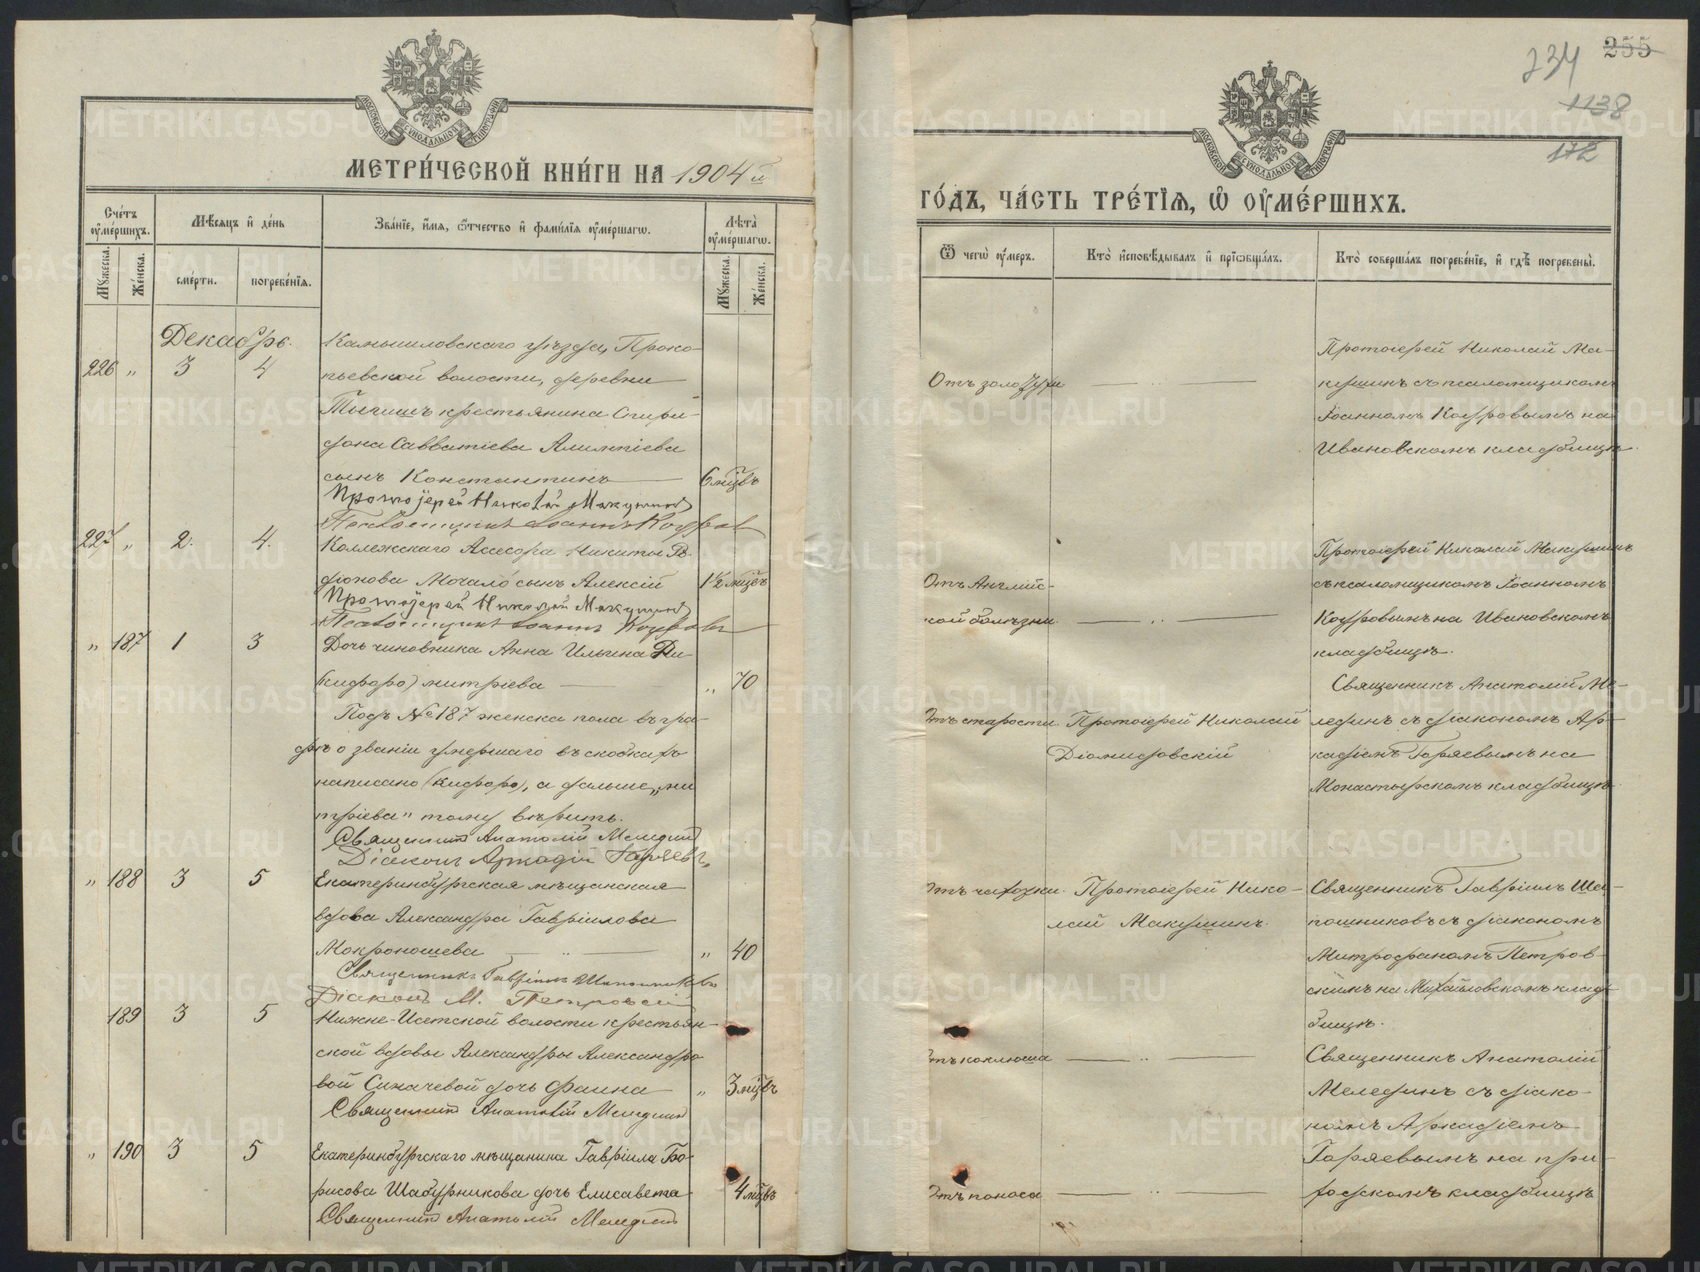 234
255
1138
172
МОСКОВСКОЙ СѴНОДАЛЬНОЙ ТИПОГРАФІИ
МОСКОВСКОЙ СѴНОДАЛЬНОЙ ТИПОГРАФІИ
МЕТРИ́ЧЕСКОЙ КНИ́ГИ НА 1904й
ГО́ДЪ, ЧА́СТЬ ТРЕ́ТІѦ, Ѡ҆ ОУ҆МЕ́РШИХЪ.
Сче́тъ оу҆ме́ршихъ.
Мѣ́сяцъ и҆ де́нь
Зва́ніе, и҆́мя, ѻ҆́тчество и҆ фами́лія оу҆ме́ршагѡ.
Лѣ́та оу҆ме́ршагѡ.
Му́жеска.
Же́нска.
сме́рти.
погребе́нія.
Му́жеска.
Же́нска.
Ѿ чегѡ̀ оу҆́меръ.
Кто̀ и҆сповѣ́дывалъ и҆ прїѡбща́лъ.
Кто̀ соверша́лъ погребе́ніе, и҆ гдѣ̀ погребены̀.
Декабрь.
226 „ 3 4
Камышловскаго уѣзда, Проко-
пьевской волости, деревни
Тыгишъ крестьянина Спири-
дона Савватіева Алимпіева
сынъ Константинъ
6 мцвъ
Протоіерей Николай Макушинъ
Псаломщикъ Іоаннъ Кодровъ
Отъ золотухи
Протоіерей Николай Ма-
кушинъ съ псаломщикомъ
Іоанномъ Кодровымъ на
Ивановскомъ кладбищѣ.
227 „ 2. 4.
Коллежскаго Асесора Никиты Ро-
діонова Мочало сынъ Алексій
1½ мцвъ
Протоіерей Николай Макушинъ
Псаломщикъ Іоаннъ Кодровъ
Отъ Англійс-
кой болѣзни
Протоіерей Николай Макушинъ
съ псаломщикомъ Іоанномъ
Кодровымъ на Ивановскомъ
кладбищѣ.
„ 187 1 3
Дочь чиновника Анна Ильина Ни-
(кифоро) митріева
„ 70
Подъ № 187 женска пола въ гра-
фѣ о званіи умершаго въ скобкахъ
написано (кифоро), а дальше „ми
тріева“ тому вѣрить.
Священникъ Анатолій Мелединъ
Діаконъ Аркадій Гаряевъ
Отъ старости
Протоіерей Николай
Діомидовскій
Священникъ Анатолій Ме-
лединъ съ діакономъ Ар-
кадіемъ Гаряевымъ на
Монастырскомъ кладбищѣ
„ 188 3 5
Екатеринбургская мѣщанская
вдова Александра Гавріилова
Мокроносева
„ 40
Священникъ Гавріилъ Шапошниковъ
Діаконъ М. Петровскій
Отъ чахотки
Протоіерей Нико-
лай Макушинъ.
Священникъ Гавріилъ Ша-
пошниковъ съ діакономъ
Митрофаномъ Петров-
скимъ на Михайловскомъ клад-
бищѣ.
189 3 5
Нижне-Исетской волости крестьян-
ской вдовы Александры Александро
вой Сыначевой дочь Фаина
„ 3 мцвъ
Священникъ Анатолій Меледин
Отъ коклюша
Священникъ Анатолій
Мелединъ съ діако-
номъ Аркадіемъ
Гаряевымъ на при-
ходскомъ кладбищѣ
„ 190 3 5
Екатеринбургскаго мѣщанина Гавріила Бо-
рисова Шабурникова дочь Елисавета
4 мцвъ
Священникъ Анатолій Мелединъ
Отъ поноса
METRIKI.GASO-URAL.RU